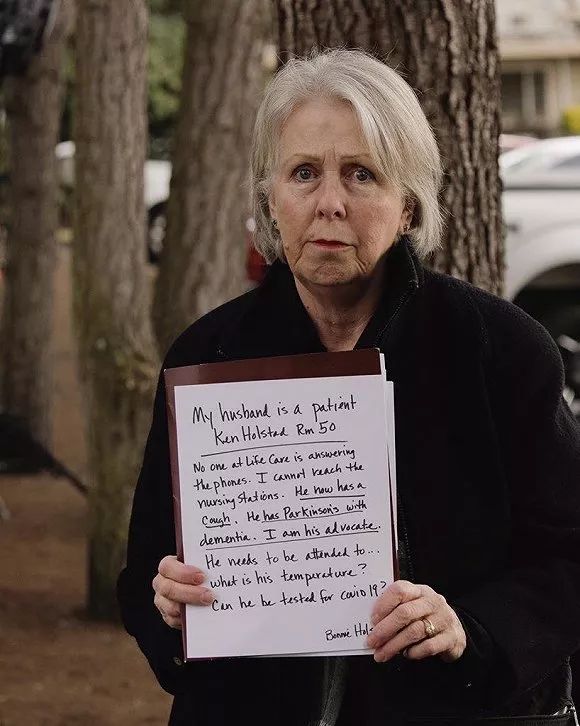 My husband is a patient
Ken Holstad Rm 50
No one at Life Care is answering
the phones. I cannot reach the
nursing stations. He now has a
cough. He has Parkinson's with
dementia. I am his advocate.
He needs to be attended to...
what is his temperature?
Can he be tested for covid 19?
Bonnie Hols